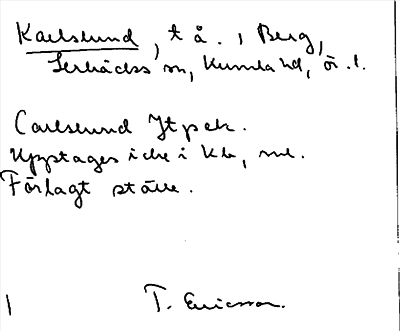 Karlslund, t å. i Berg,
Lerbäcks sn, Kumla hd, ör. l.
Carlslund Jtpek.
Upptages icke i Kb, ml.
Förlagt ställe.
T. Ericsson.